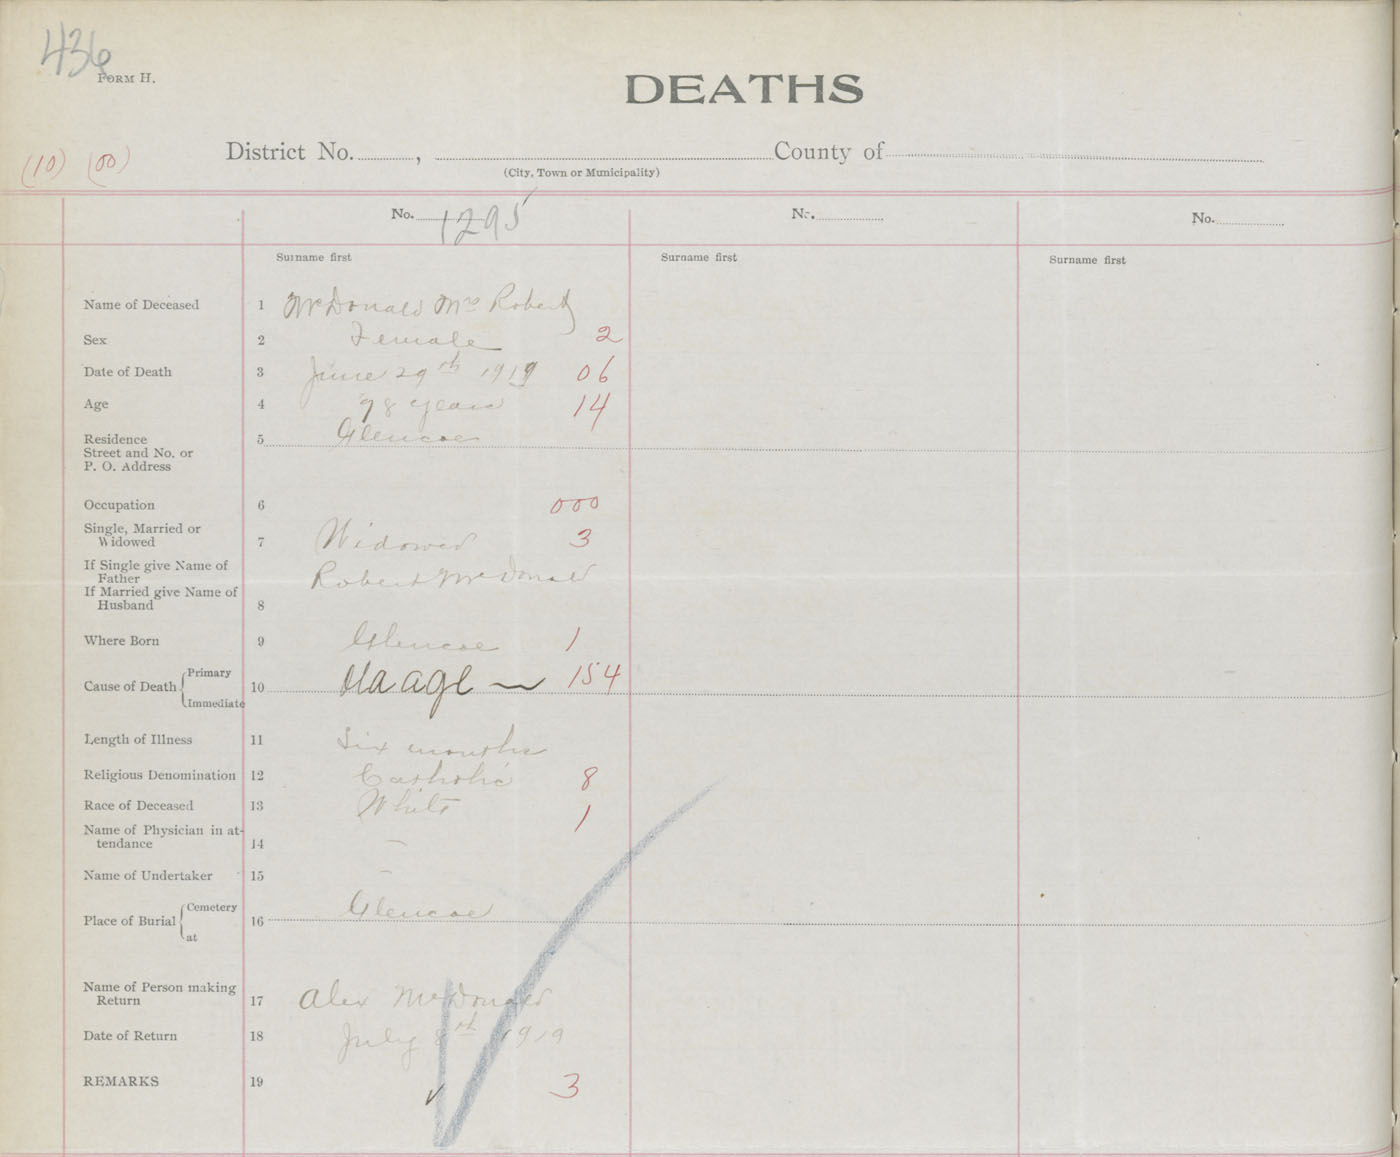 436
FORM H.
DEATHS
(10) (00)
District No. , County of
(City, Town or Municipality)
No. 1295 No. No.
Surname first Surname first Surname first
Name of Deceased 1 McDonald Mrs Robert
Sex 2 Female 2
Date of Death 3 June 29th 1919 06
Age 4 98 years 14
Residence 5 Glencoe
Street and No. or
P. O. Address
Occupation 6 000
Single, Married or
Widowed 7 Widowed 3
If Single give Name of
Father Robert McDonald
If Married give Name of
Husband 8
Where Born 9 Glencoe 1
Cause of Death { Primary
10 Old age 154
Immediate
Length of Illness 11 Six months
Religious Denomination 12 Catholic 8
Race of Deceased 13 White 1
Name of Physician in at-
tendance 14 —
Name of Undertaker 15 —
Place of Burial { Cemetery
16 Glencoe
at
Name of Person making
Return 17 Alex McDonald
Date of Return 18 July 8th 1919
REMARKS 19 3